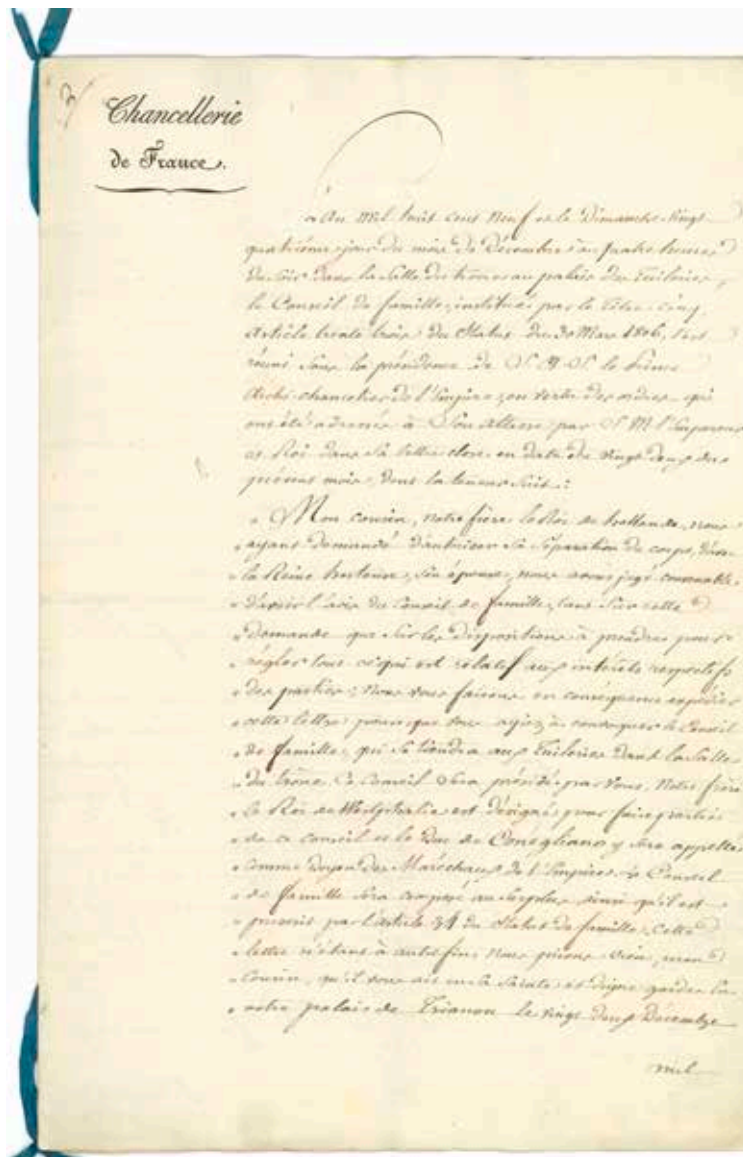 3
Chancellerie
de France.
L'An mil huit cent neuf et le Dimanche vingt
quatrième jour du mois de Décembre à quatre heures
du soir dans la Salle du trône au palais des Tuileries,
le Conseil de famille, institué par le titre cinq,
Article trente trois du Statut du 30 Mars 1806, s'est
réuni sous la présidence de S. A. S. le Prince
Archi-chancelier de l'Empire, en vertu des ordres qui
ont été adressés à Son Altesse par S. M. l'Empereur
et Roi dans sa lettre close en date du vingt deux du
présent mois, dont la teneur suit :
" Mon cousin, notre frère le Roi de hollande, nous
" ayant demandé d'autoriser sa séparation de corps d'avec
" la Reine hortense, son épouse, nous avons jugé convenable
" d'avoir l'avis du Conseil de famille, tant sur cette
" demande que sur les dispositions à prendre pour
" régler tout ce qui est relatif aux intérêts respectifs
" des parties; nous vous faisons en conséquence expédier
" cette lettre pour que vous ayiez à convoquer le Conseil
" de famille, qui se tiendra aux Tuileries dans la Salle
" du trône. Ce Conseil sera présidé par vous. Notre frère
" le Roi de Westphalie est désigné pour faire partie
" de ce conseil et le Duc de Conégliano y sera appellé
" comme doyen des Maréchaux de l'Empire. Le Conseil
" de famille sera composé au surplus ainsi qu'il est
" prescrit par l'article 34 du Statut de famille. Cette
" lettre n'étant à autre fin, nous prions Dieu, mon
" Cousin, qu'il vous ait en sa Sainte et digne garde. En
" notre palais de Trianon le vingt deux Décembre
mil